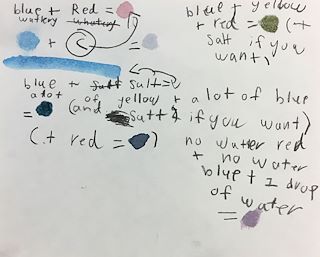 blue + Red =
wuttery
+ C =
blue + salt =
alot of yellow +
= (and salt
(+ red = )
blue + yellow
+ red = (+
salt if you
want)
a lot of blue
if you want)
no wutter red
+ no water
blue + 1 drop
of water
=